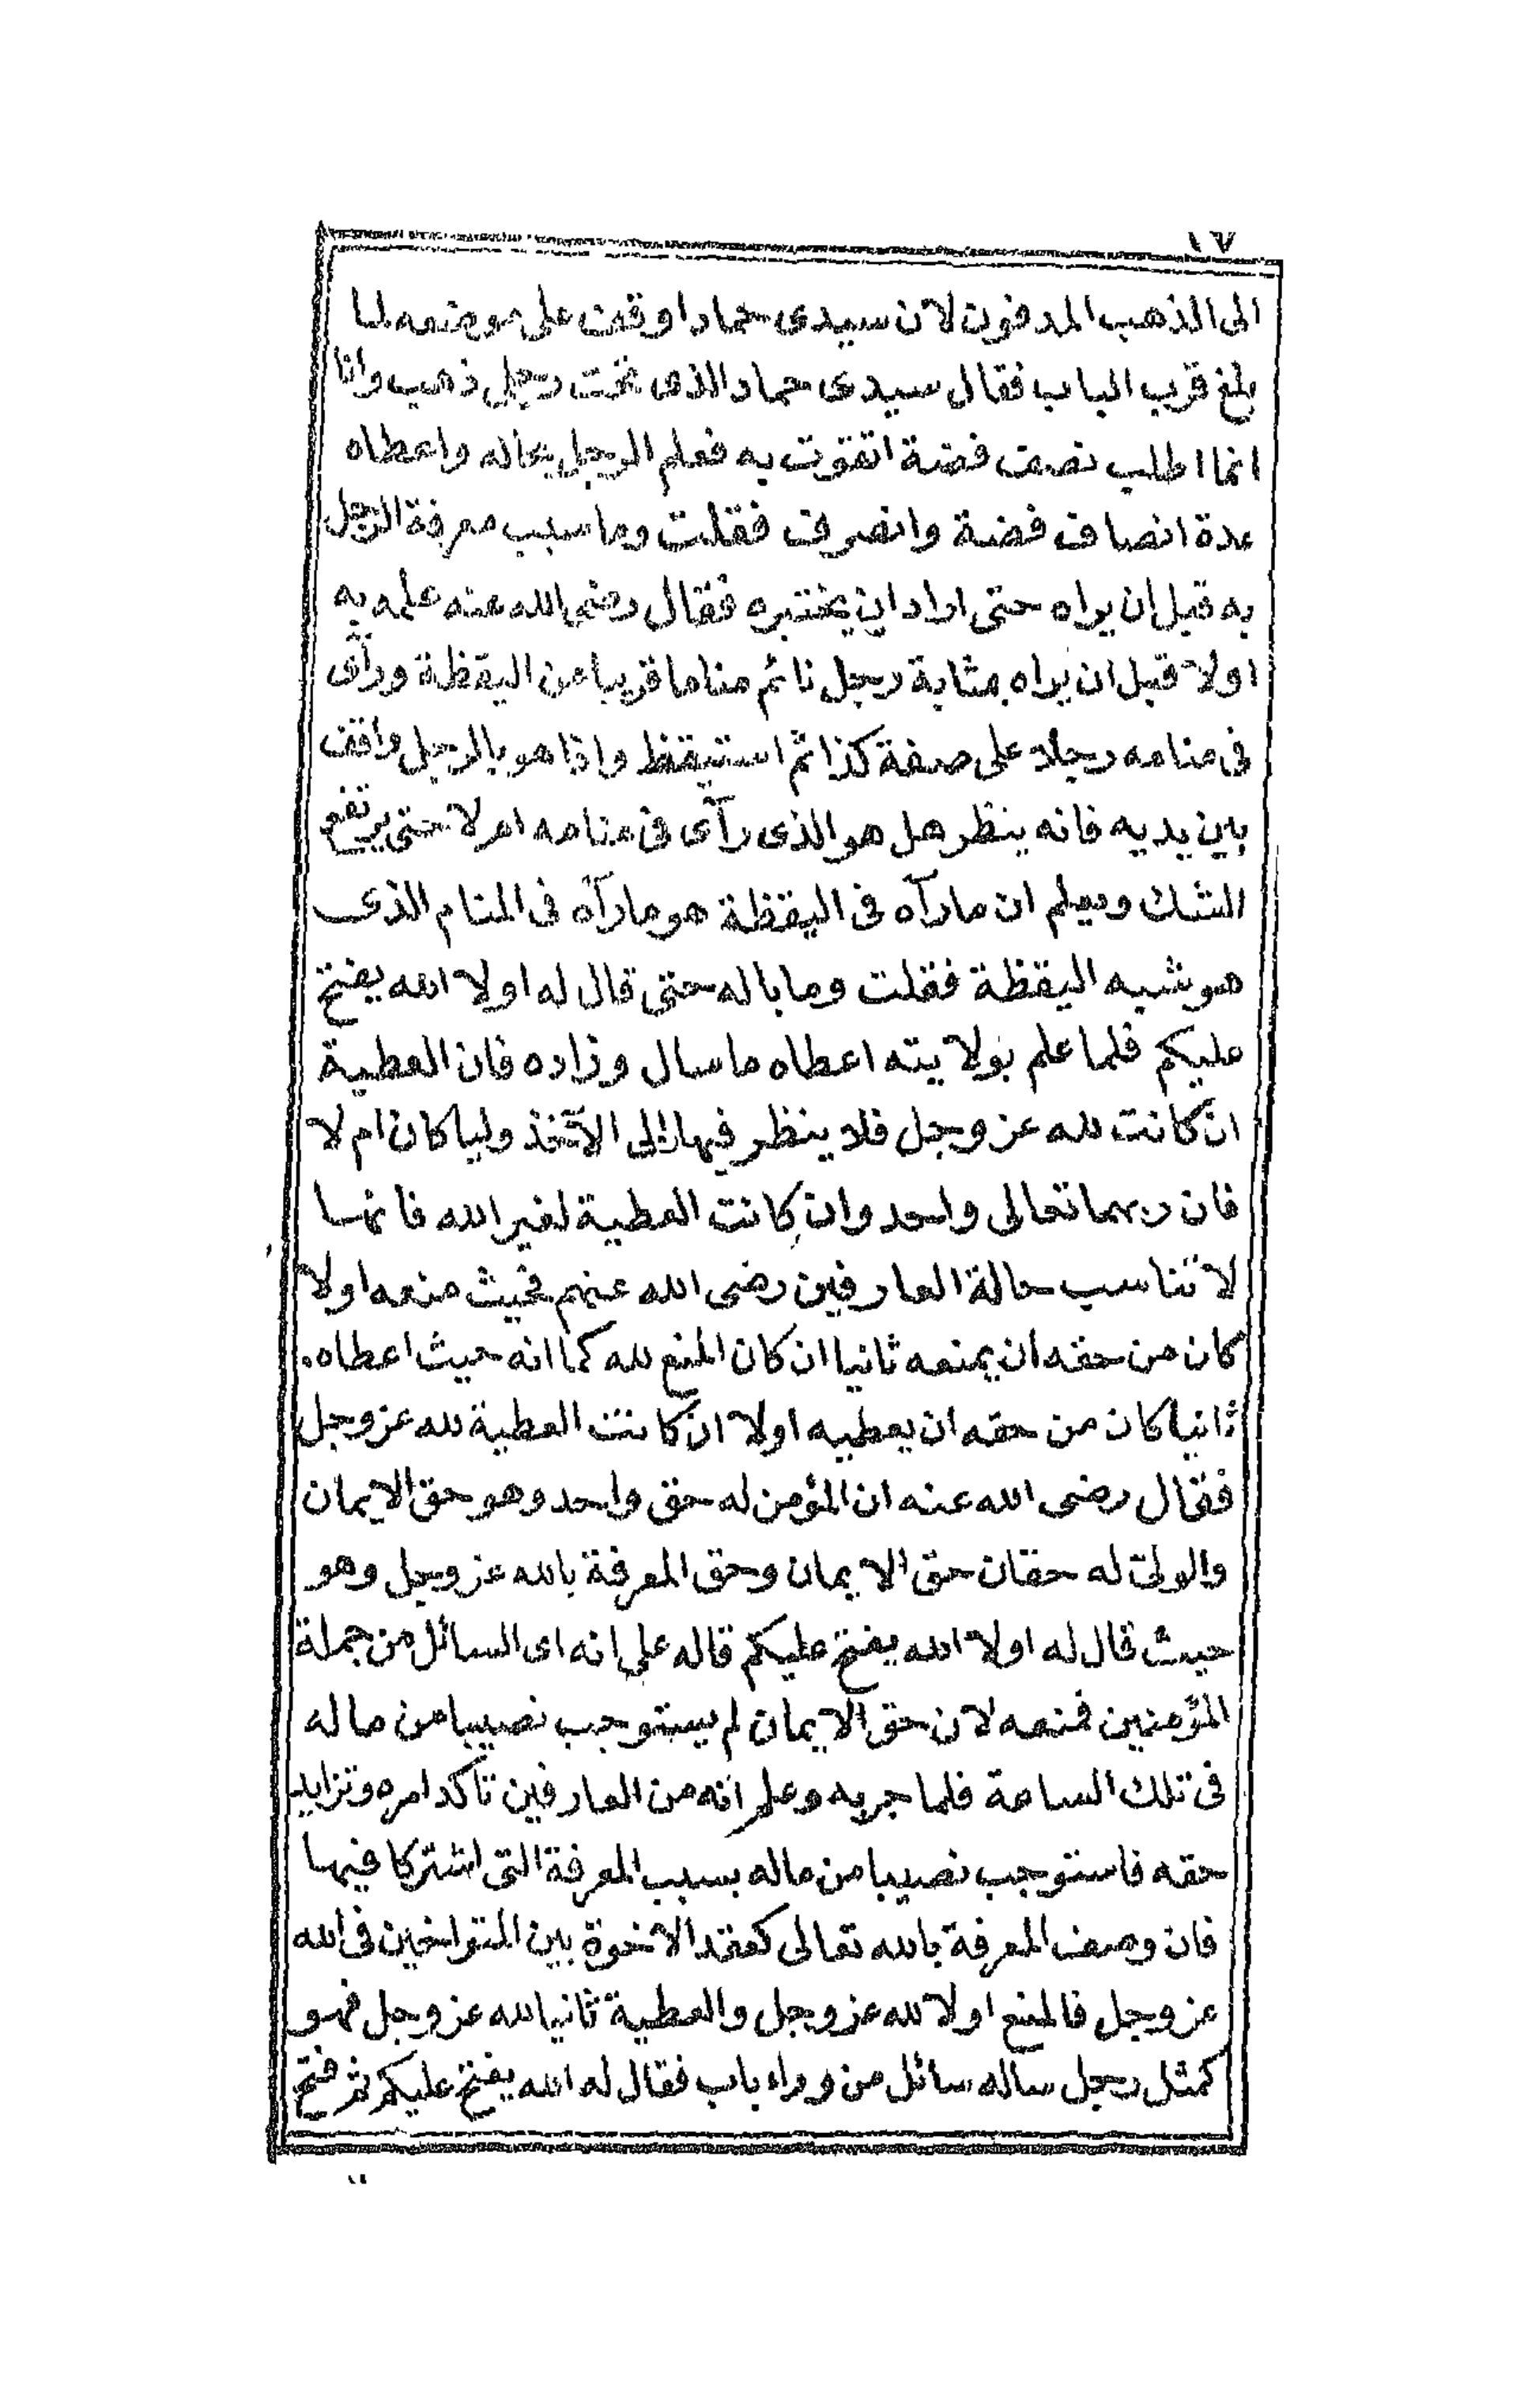 ١٧
الى الذهب المدفون لان سيدى حمادا وقف على موضعه لما
بلغ قرب الباب فقال سيدى حماد الذى تحت رجلى ذهب وانا
انما اطلب نصف فضة اتقوّت به فعلم الرجل بحاله واعطاه
عدة انصاف فضة وانصرف فقلت وما سبب معرفة الرجل
به قبل ان يراه حتى اراد ان يختبره فقال رضى الله عنه علمه به
اولا قبل ان يراه بمثابة رجل نائم مناما قريبا من اليقظة ورأى
فى منامه رجلا على صفة كذا ثم استيقظ واذا هو بالرجل واقف
بين يديه فانه ينظر هل هو الذى رآى فى منامه ام لا حتى يرتفع
الشك ويعلم ان مارآه فى اليقظة هو مارآه فى المنام الذى
هو شبه اليقظة فقلت وما باله حتى قال له اولا الله يفتح
عليكم فلما علم بولايته اعطاه ما سال وزاده فان العطية
ان كانت لله عز وجل فلا ينظر فيها الى الآخذ وليا كان ام لا
فان ربهما تعالى واحد وان كانت العطية لغير الله فانها
لا تناسب حالة العارفين رضى الله عنهم فحيث منعه اولا
كان من حقه ان يمنعه ثانيا ان كان المنع لله كما انه حيث اعطاه
ثانيا كان من حقه ان يعطيه اولا ان كانت العطية لله عز وجل
فقال رضى الله عنه ان المؤمن له حق واحد وهو حق الايمان
والولىّ له حقان حق الايمان وحق المعرفة بالله عز وجل وهو
حيث قال له اولا الله يفتح عليكم قاله على انه اى السائل من جملة
المؤمنين فمنعه لان حق الايمان لم يستوجب نصيبا من ماله
فى تلك الساعة فلما جربه وعلم انه من العارفين تاكد امره وتزايد
حقه فاستوجب نصيبا من ماله بسبب المعرفة التى اشتركا فيها
فان وصف المعرفة بالله تعالى كعقد الاخوة بين المتواخيين فى الله
عز وجل فالمنع اولا لله عز وجل والعطية ثانيا لله عز وجل فهو
كمثل رجل ساله سائل من وراء باب فقال له الله يفتح عليكم ثم فتح